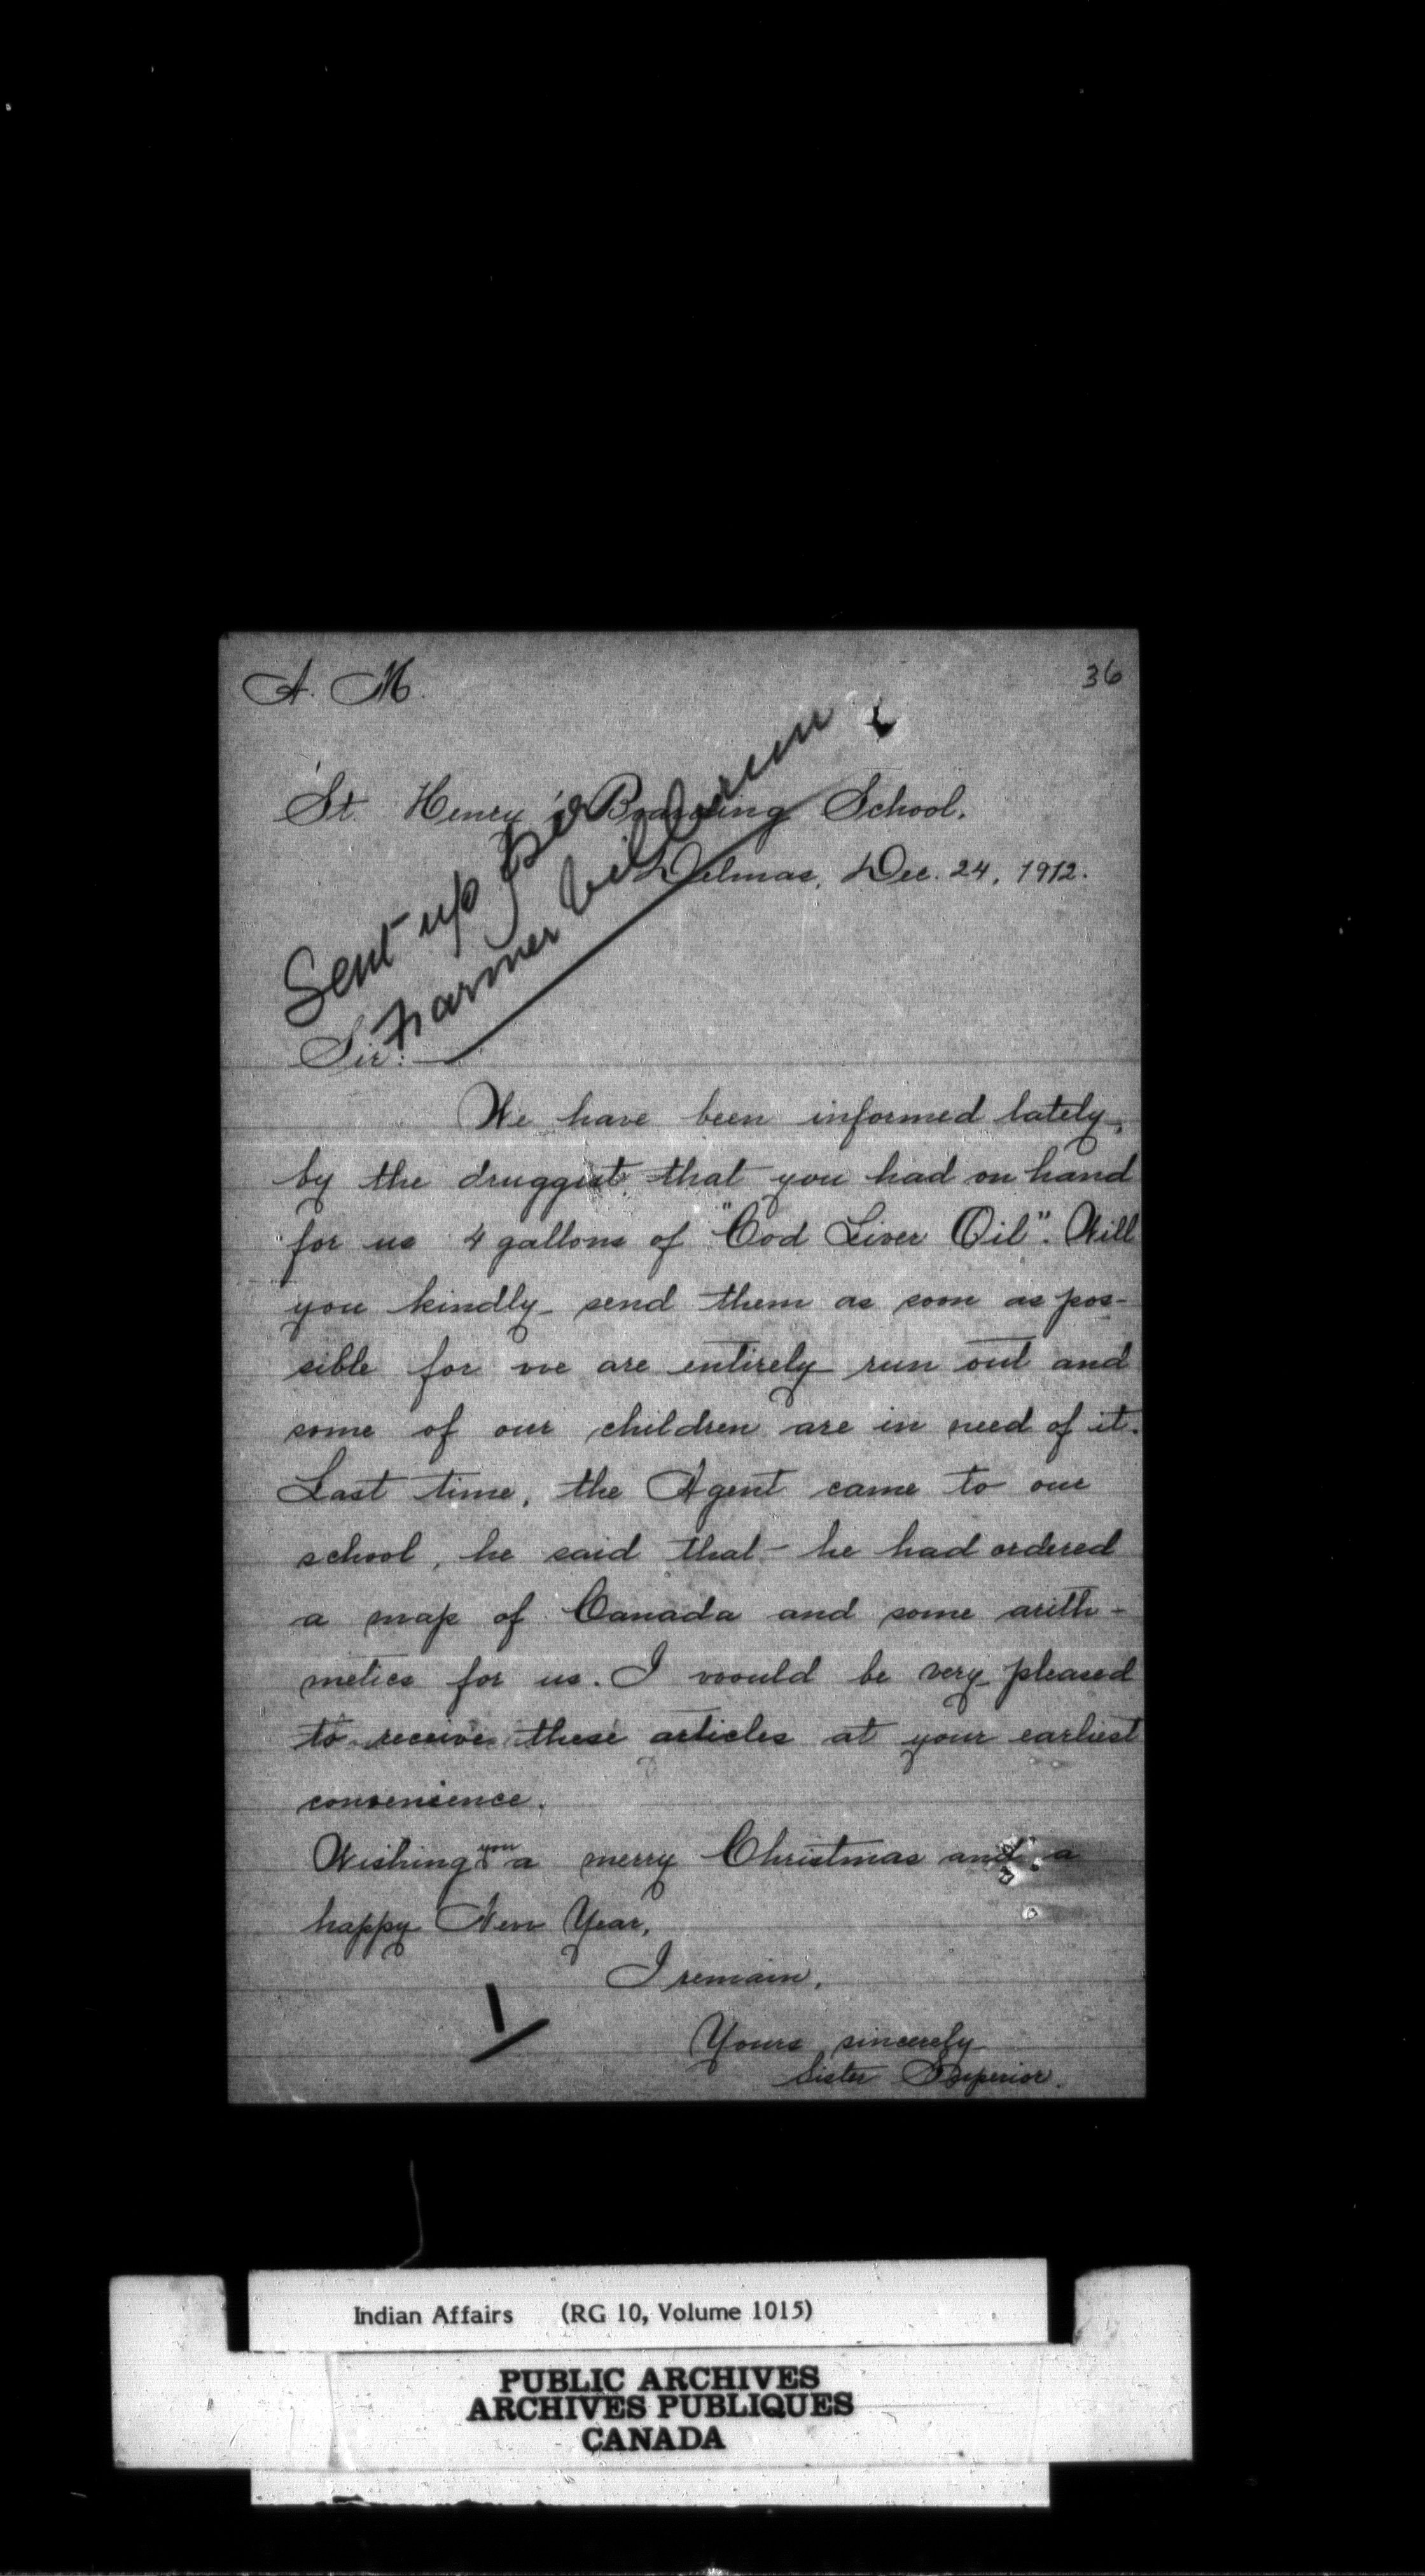 A. M.
36
St. Henry's Boarding School.
Delmas, Dec. 24, 1912.
Sent up per
Farmer
Sir:
We have been informed lately,
by the druggist that you had on hand
for us 4 gallons of "Cod Liver Oil". Will
you kindly send them as soon as pos-
sible for we are entirely run out and
some of our children are in need of it.
Last time, the Agent came to our
school, he said that he had ordered
a map of Canada and some arith-
metics for us. I would be very pleased
to receive these articles at your earliest
convenience.
Wishing you a merry Christmas and a
happy New Year,
I remain,
Yours sincerely
Sister Superior.
Indian Affairs (RG 10, Volume 1015)
PUBLIC ARCHIVES
ARCHIVES PUBLIQUES
CANADA